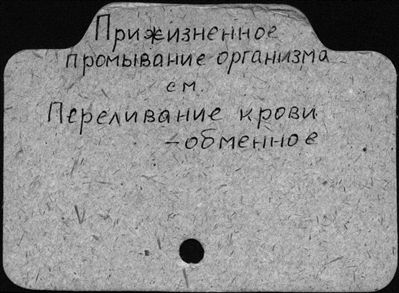 Прижизненное
промывание организма
см.
Переливание крови
-обменное